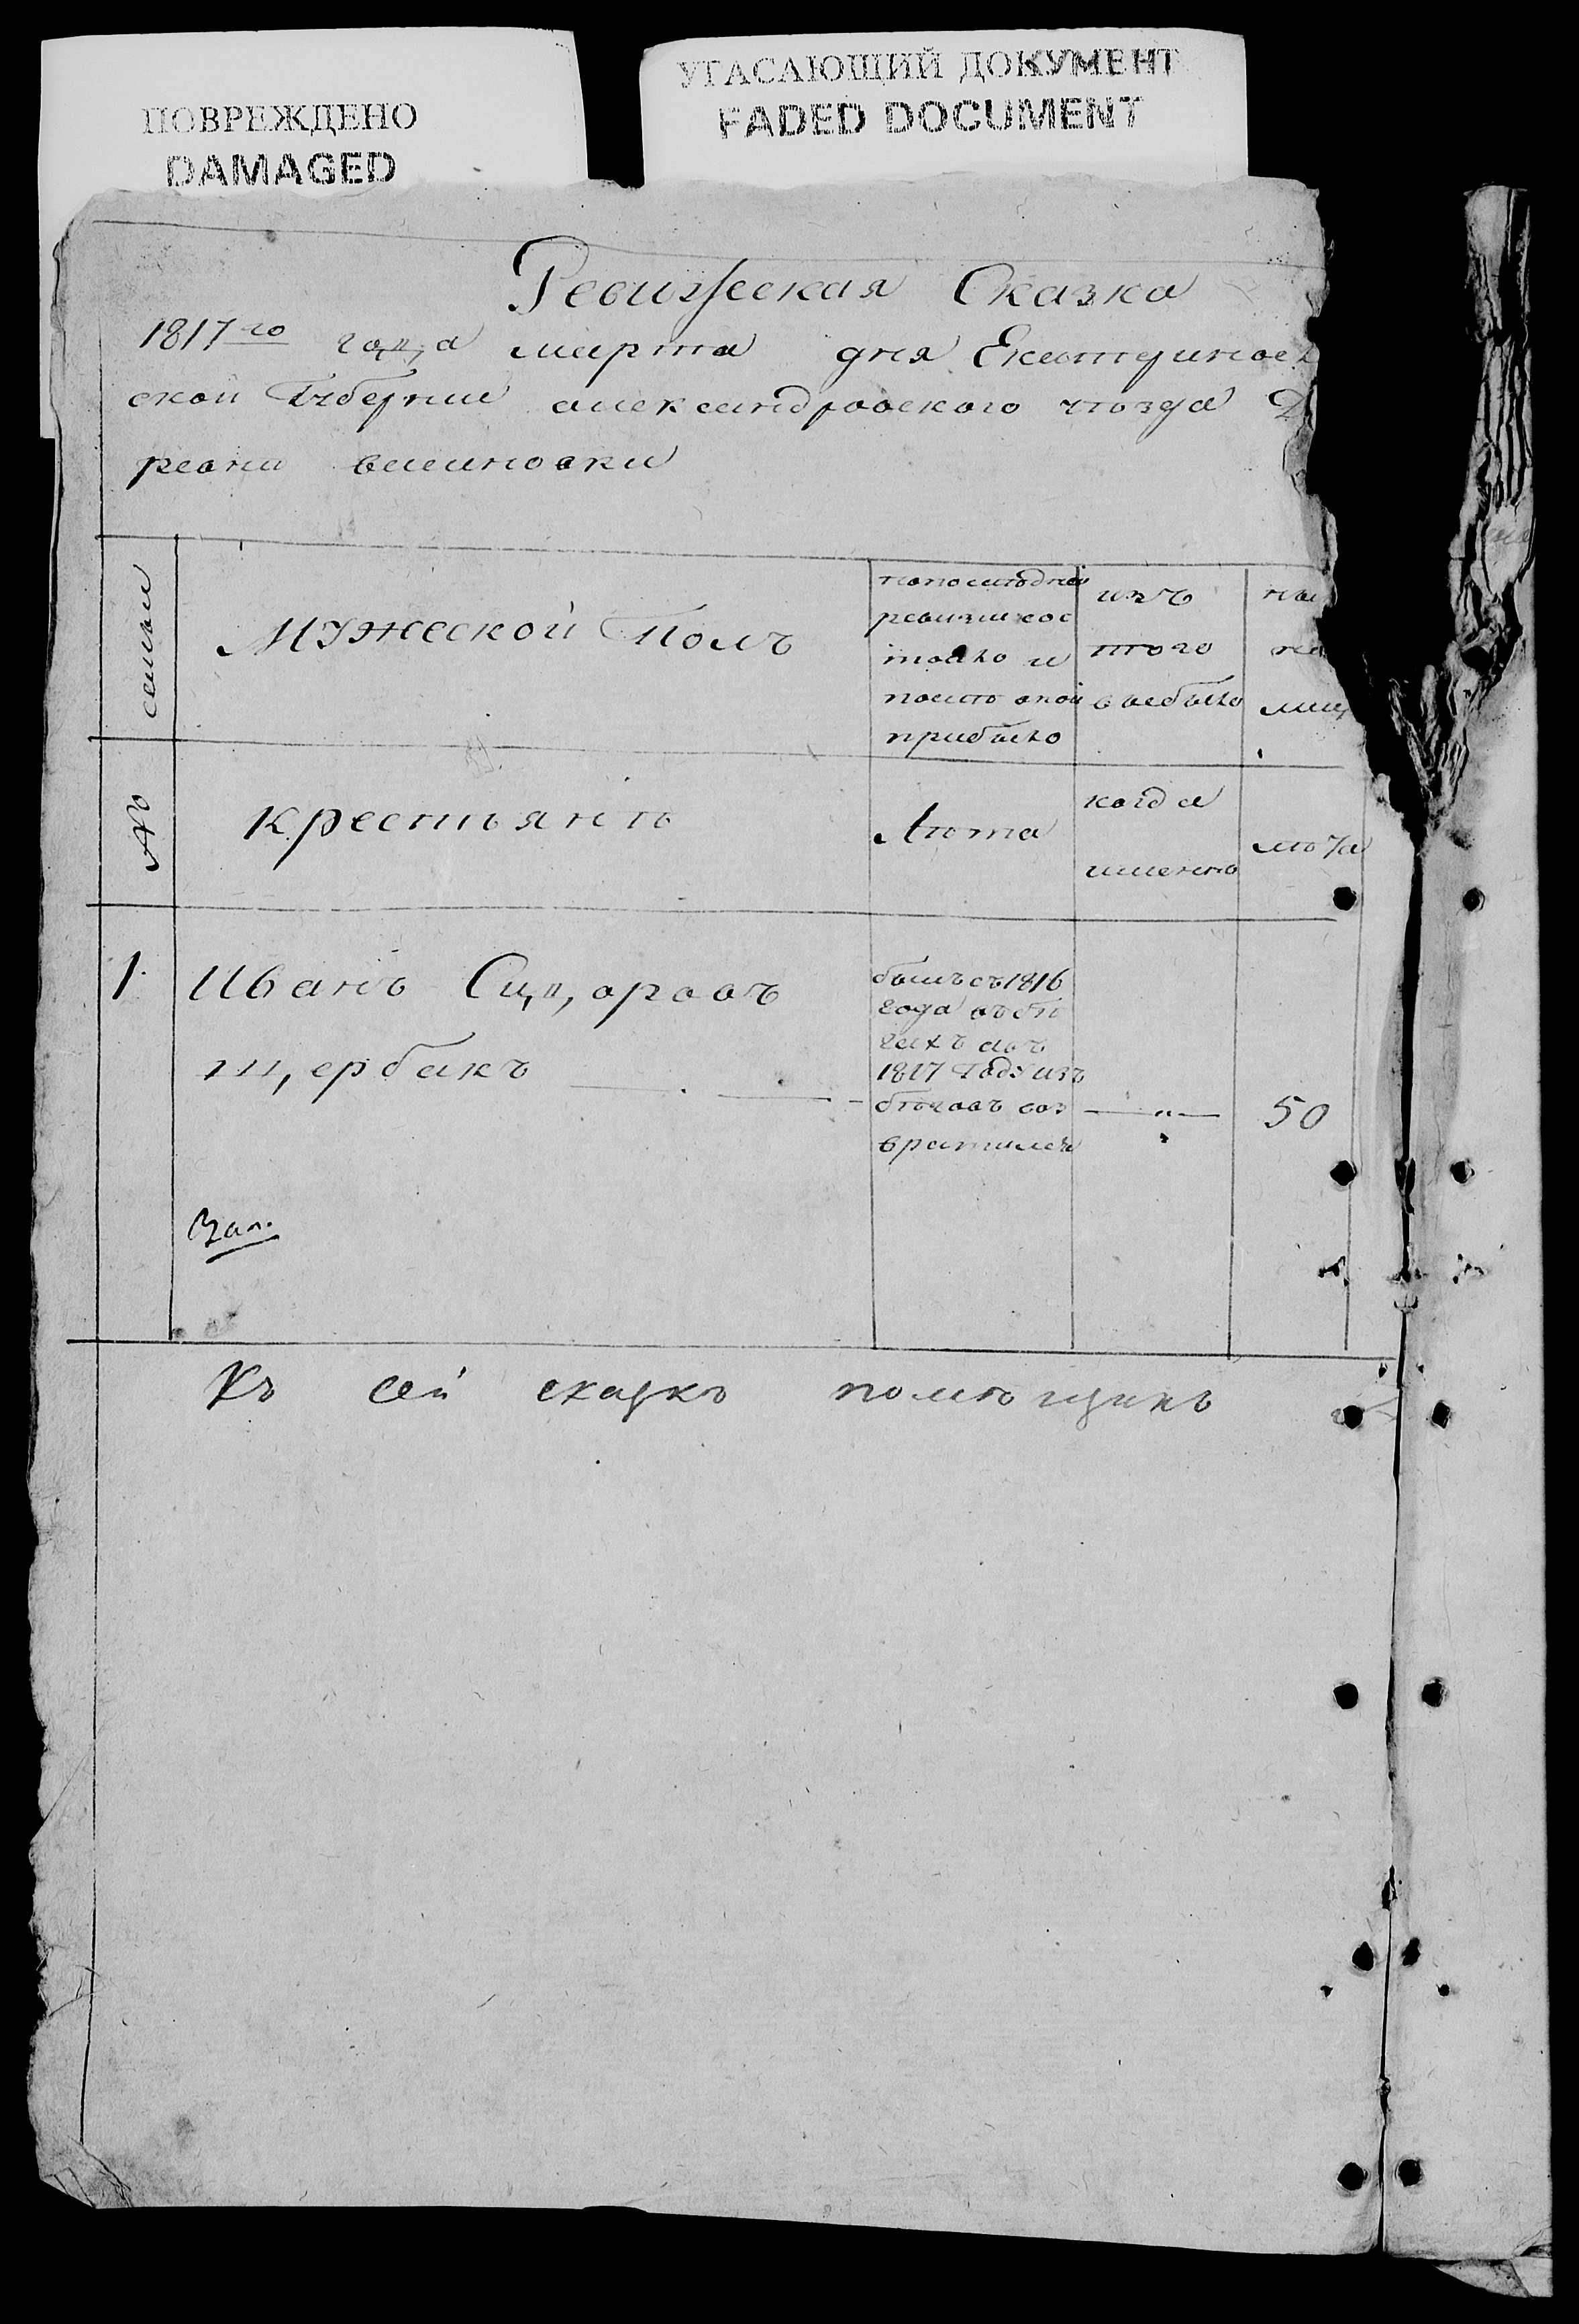 ПОВРЕЖДЕНО
DAMAGED
УГАСАЮЩИЙ ДОКУМЕНТ
FADED DOCUMENT
Ревижеская Сказка
1817го года марта дня Екатеринос
ской Губернии александровского уѣзда Д
ревни
семьи
Мужеской Полъ
попослѣдней
ревизии сос
тояло и
послѣ оной
прибыло
изъ
того
выбыло
ны
не
лиц
№
крестьянѣ
Лѣта
когда
именно
лѣта
1.
Иванъ Сидоровъ
щербакъ
былъ съ 1816
года въ бѣ
гахъ а въ
1817 Году изъ
бѣговъ воз
вратился
— „ —
50
Къ сей скаске помѣщикъ